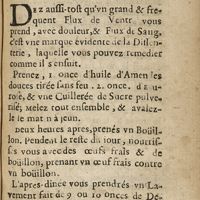 Dez aussi-tost qu'vn grand & fre-
quent Flux de Ventre vous
prend, avec douleur, & Flux de Sang,
c'est vne marque évidente de la Dissen-
terie, laquelle vous pouvez remedier
comme il s'ensuit.
Prenez, 1 once d'huile d'Amen les
douces tirée sans feu . 2. once, d'au
rose, & vne Cuillerée de Sucre pulve-
risé; melez tout ensemble, & avalez-
le le matin à jeun.
Deux heures apres, prenés vn Boüil-
lon. Pendent le reste du jour, nourriss-
ſés vous avec des œufs frais & de
boüillon, prenant vn œuf frais contre
vn boüillon.
L'apres-dince vous prendrés vn La-
vement fait de 9 ou 10 onces de De-